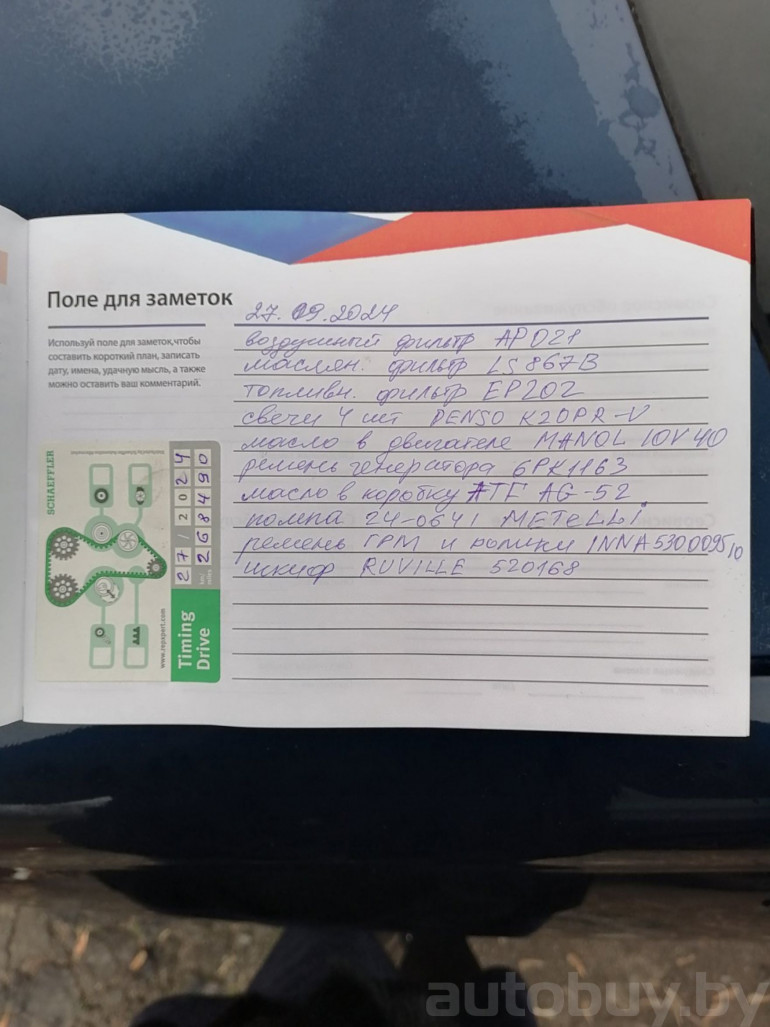 Поле для заметок
Используй поле для заметок,чтобы
составить короткий план, записать
дату, имена, удачную мысль, а также
можно оставить ваш комментарий.
27.09.2024
воздушный фильтр AP021
маслян. фильтр LS867B
топливн. фильтр EP202
свечи 4 шт DENSO K20PR-V
масло в двигателе MANOL 10V40
ремень генератора 6PK1163
масло в коробку ATF AG-52
помпа 24-0641 METELLI.
ремень ГРМ и ролики INNA 530009510
шкиф RUVILLE 520168
SCHAEFFLER
www.repxpert.com
Timing
Drive
27/2024
268490
autobuy.by